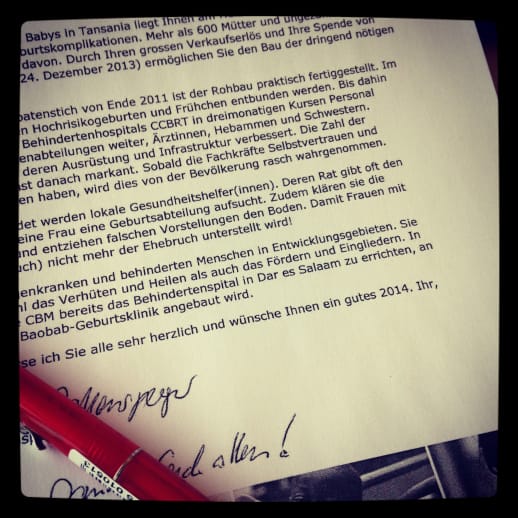 Babys in Tansania liegt Ihnen am
burtskomplikationen. Mehr als 600 Mütter und
davon. Durch Ihren grossen Verkaufserlös und Ihre Spende von
24. Dezember 2013) ermöglichen Sie den Bau der dringend nötigen
patenstich von Ende 2011 ist der Rohbau praktisch fertiggestellt. Im
n Hochrisikogeburten und Frühchen entbunden werden. Bis dahin
Behindertenhospitals CCBRT in dreimonatigen Kursen Personal
enabteilungen weiter, Ärztinnen, Hebammen und Schwestern.
deren Ausrüstung und Infrastruktur verbessert. Die Zahl der
st danach markant. Sobald die Fachkräfte Selbstvertrauen und
en haben, wird dies von der Bevölkerung rasch wahrgenommen.
det werden lokale Gesundheitshelfer(innen). Deren Rat gibt oft den
eine Frau eine Geburtsabteilung aufsucht. Zudem klären sie die
und entziehen falschen Vorstellungen den Boden. Damit Frauen mit
uch) nicht mehr der Ehebruch unterstellt wird!
enkranken und behinderten Menschen in Entwicklungsgebieten. Sie
hl das Verhüten und Heilen als auch das Fördern und Eingliedern. In
CBM bereits das Behindertenspital in Dar es Salaam zu errichten, an
Baobab-Geburtsklinik angebaut wird.
se ich Sie alle sehr herzlich und wünsche Ihnen ein gutes 2014. Ihr,
allen!